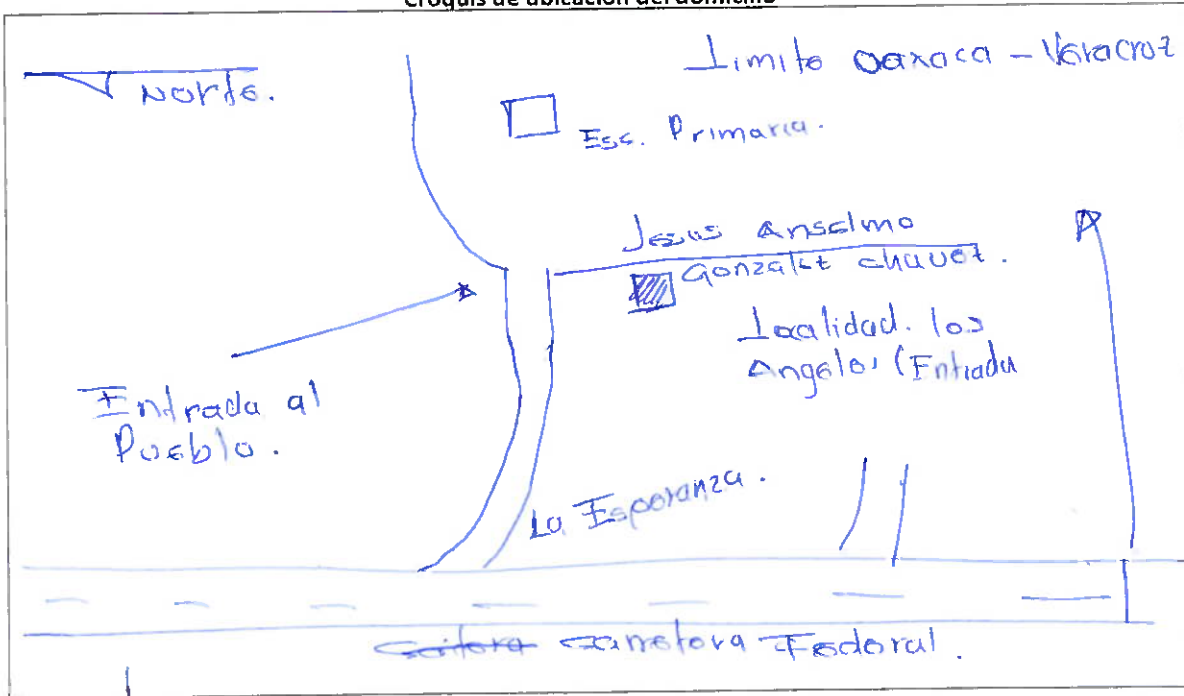 Croquis de ubicación del domicilio
Limite Oaxaca - Veracroz
Norte.
Esc. Primaria.
Jesus Anselmo
Gonzalez chavez.
Localidad. los
Angeles (Entrada
Entrada al
Pueblo.
La Esperanza.
carretera Federal.